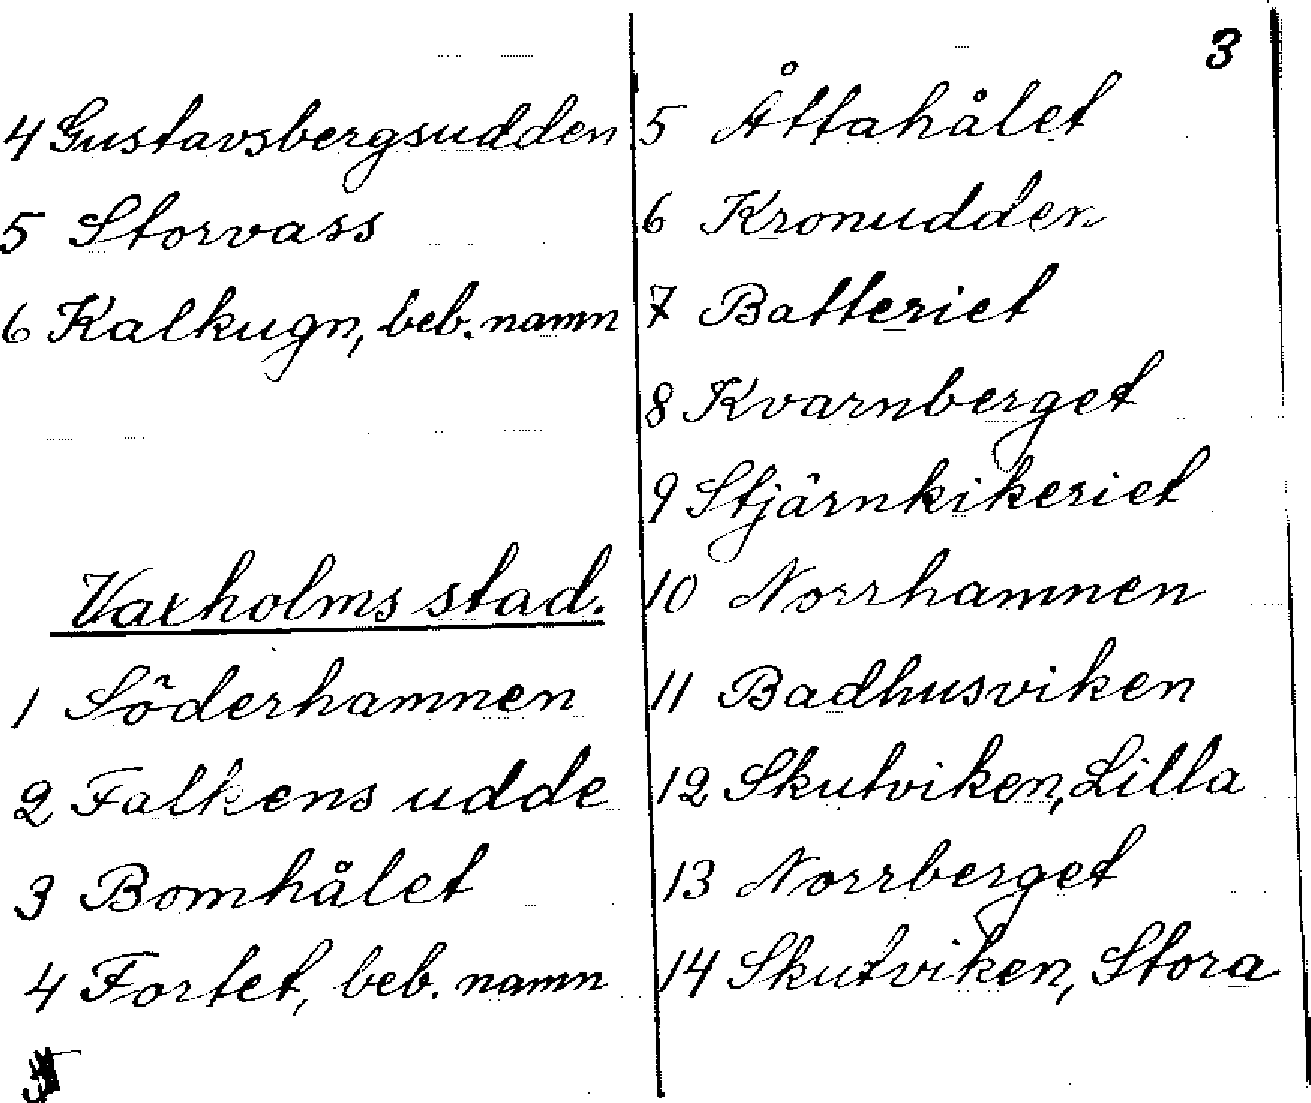 3
4 Gustavsbergsudden
5 Storvass
6 Kalkugn, beb. namn
Vaxholms stad.
1 Söderhamnen
2 Falkens udde
3 Bomhålet
4 Fortet, beb. namn
5 Åttahålet
6 Kronudden
7 Batteriet
8 Kvarnberget
9 Stjärnkikeriet
10 Norrhamnen
11 Badhusviken
12 Skutviken, Lilla
13 Norrberget
14 Skutviken, Stora